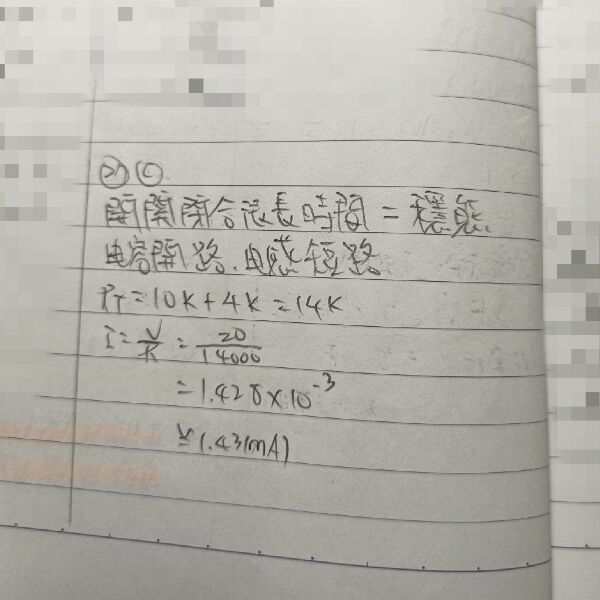 ㉑ⓒ.
開關閉合很長時間=穩態.
电容開路、电感短路
PT=10K+4K=14K
I=V/R=20/14000
=1.428×10⁻³
≚1.43(mA)